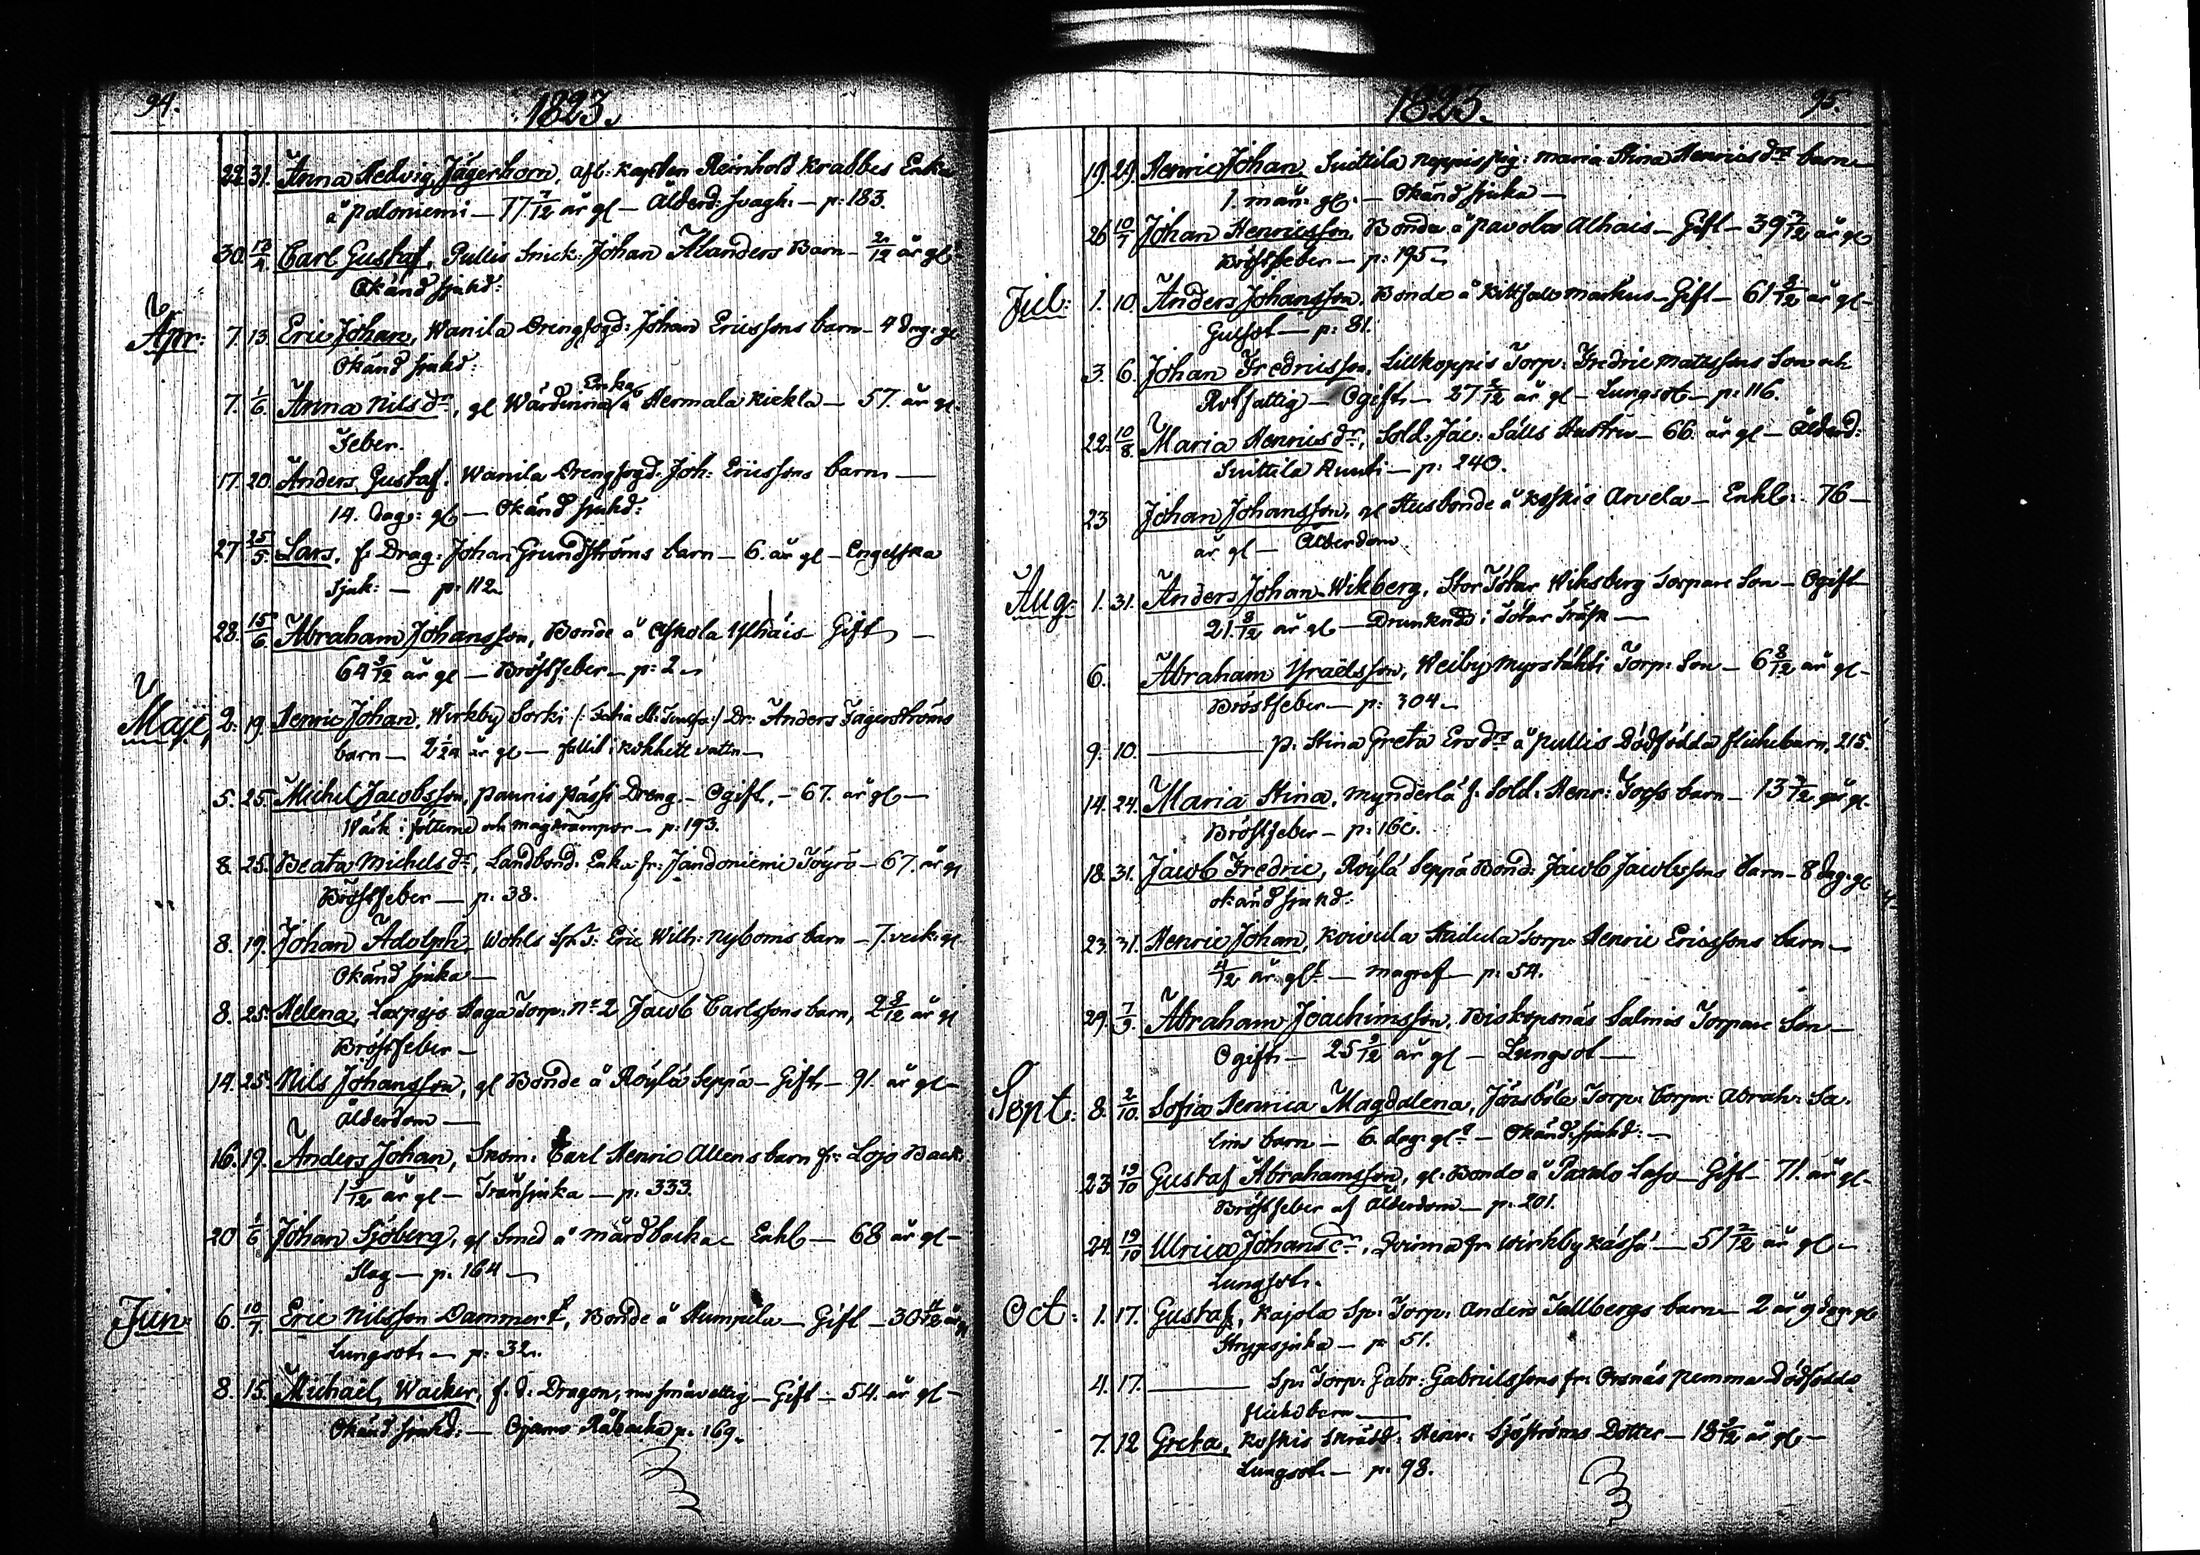 94.
1823.
22. 31. Anna Hedvig Jägerhorn, afl: Kapten Reinhold Krabbes Enka
å Paloniemi — 77 7/12 år gl — Ålderd: svagh: — p: 183.
30. 13/4 Carl Gustaf, Pullis Snick: Johan Ålanders Barn — 2/12 år gl
Okänd sjukd:
Apr: 7. 13. Eric Johan, Wanila Drengfogd: Johan Ericssons barn — 4 dag: gl
Okänd sjukd:
7. 1/6. Anna Nilsdr, gl Wärdinna Enka å Hermala Kiekla — 57. år gl.
Feber.
17. 20. Anders Gustaf. Wanila Drengfogd: Joh: Ericssons barn —
14. dag: gl — Okänd sjukd:
27 25/5. Lars, f. Drag: Johan Grundströms barn — 6. år gl — Engelska
sjuk: — p: 112
28. 15/6. Abraham Johansson, Bonde å Ojkola Ylhäis Gift —
64 3/12 år gl — Bröstfeber — p: 2
Maji, 2. 19. Henric Johan, Wirkby Sorki Dr: Anders Fagerströms
barn — 2 år gl — fallit i kokhett vattn —
5. 25. Michel Jacobsson, Paunis Pässi Dreng. — Ogift, — 67. år gl —
Wärk i fötterne och magkrampor — p: 193.
8. 25. Beata Michelsdr, Landbond: Enka fr: Jandoniemi Töyrö — 67. år gl
Bröstfeber — p: 38.
8. 19. Johan Adolph, Wohls Sp: T: Eric Wilh: Nyboms barn — 7. veck: gl
Okänd sjuka —
8. 25. Helena, Laxpojo Haga Torp: No 2 Jacob Carlssons barn, 2 8/12 år gl
Bröstfeber —
14. 25. Nils Johansson, gl Bonde å Röylä Seppä — Gift — 91. år gl —
Ålderdom —
16. 19. Anders Johan, Skom: Carl Henric Allens barn fr: Lojo Back:
1 5/12 år gl — Trånsjuka — p: 333.
20 1/6 Johan Sjöberg, gl Smed å Mårdbacka Enkl — 68 år gl —
Slag — p: 164
Jun: 6. 10/7. Eric Nilsson Dammert, Bonde å Humpila — Gift — 30 år gl
Lungsot — p: 32.
8. 15. Michaël Wacker, f. d: Dragon, — Gift — 54. år gl —
Okänd sjukd: — Ojamo Råbacka p. 169.
1823.
95.
19. 29. Henric Johan Suittila Noppis pig: Maria Stina Henricsdrs barn
1. mån: gl. — Okänd sjuka —
26 10/7 Johan Henricsson, Bonde å Pavola Alhais — Gift — 39 7/12 år gl
Bröstfeber — p: 195
Jul: 1. 10. Anders Johansson. Bonde å Kittfalo Markus — Gift — 61 8/12 år gl —
Gulsot — p: 81.
3. 6. Johan Fredricsson, Lillkoppis Torp: Fredric Mattssons Son och
Rotfattig — Ogift — 27 2/12 år gl — Lungsot — p: 116.
22. 10/8. Maria Henricsdr, Sold: Jac: Sälls Hustru — 66. år gl — Ålderd:
Suittila Runti — p: 240.
23 Johan Johansson, gl Husbonde å Koskis Arvela — Enkl: 76 —
år gl — Ålderdom
Aug: 1. 31. Anders Johan Wikberg, Stor Totar Wiksberg Torpare Son — Ogift
21. 8/12 år gl — Drunknad i Totar Träsk —
6. Abraham Israëlsson, Keiby Myrstähti Torp: Son — 6 8/12 år gl —
Bröstfeber — p: 304
9. 10. — p: Stina Greta Ersdrs å Pullis Dödfödda flickebarn, 215.
14. 24. Maria Stina, Mynderlä f. Sold: Henr: Torss barn — 13 7/12 år gl.
Bröstfeber — p: 160.
18. 31. Jacob Fredric, Röylä Seppä Bond: Jacob Jacobssons barn — 8 dag: gl
okänd sjukd:
23. 31. Henric Johan, Koivula Skädula Torp: Henric Ericssons barn —
4/12 år gl — Magref — p: 54.
29. 7/9. Abraham Joachimsson, Biskopsnäs Salmis Torpare Son —
Ogift — 25 9/12 år gl — Lungsot —
Sept: 8. 2/10. Sofia Henrica Magdalena, Jönsböle Torp: Corpr: Abrah: Sa-
lins barn — 6. dag: gl — Okänd sjukd: —
23. 19/10 Gustaf Abrahamsson, gl: Bonde å Paxalo Laso — Gift — 71. år gl —
Bröstfeber af Ålderdom — p: 201.
24. 19/10 Ulrica Johansdr, Qvinna fr Wirkby Kässä — 51 2/12 år gl —
Lungsot.
Oct: 1. 17. Gustaf, Kajola Sp: Torp: Anders Tallbergs barn — 2 år 9 dag: gl
Strypsjuka — p: 51.
4. 17. — Sp: Torp: Gabr: Gabrielssons fr: Orsnäs Pemma Dödfödda
flickebarn —
7. 12 Greta, Koskis Skrädd: Henr: Sjöströms Dotter — 18 5/12 år gl —
Lungsot — p: 98.